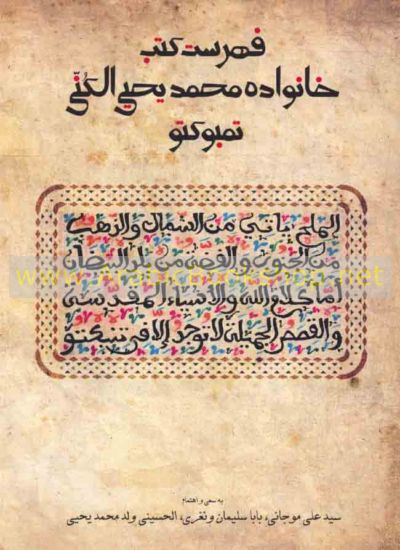 فهرست کتب
خانواده محمد یحیی الکُنّي
تمبوکتو
الملح يأتي من الشمال والذهب
من الجنوب والفضة من بلد البيضان
أما كلام الله والأشياء المقدسة
والقصص الجميلة لا توجد إلا في تنبكتو
www.arabicbookshop.net
به سعی و اهتمام:
سید علی موجانی، بابا سلیمان ونغری، الحسینی ولد محمد یحیی